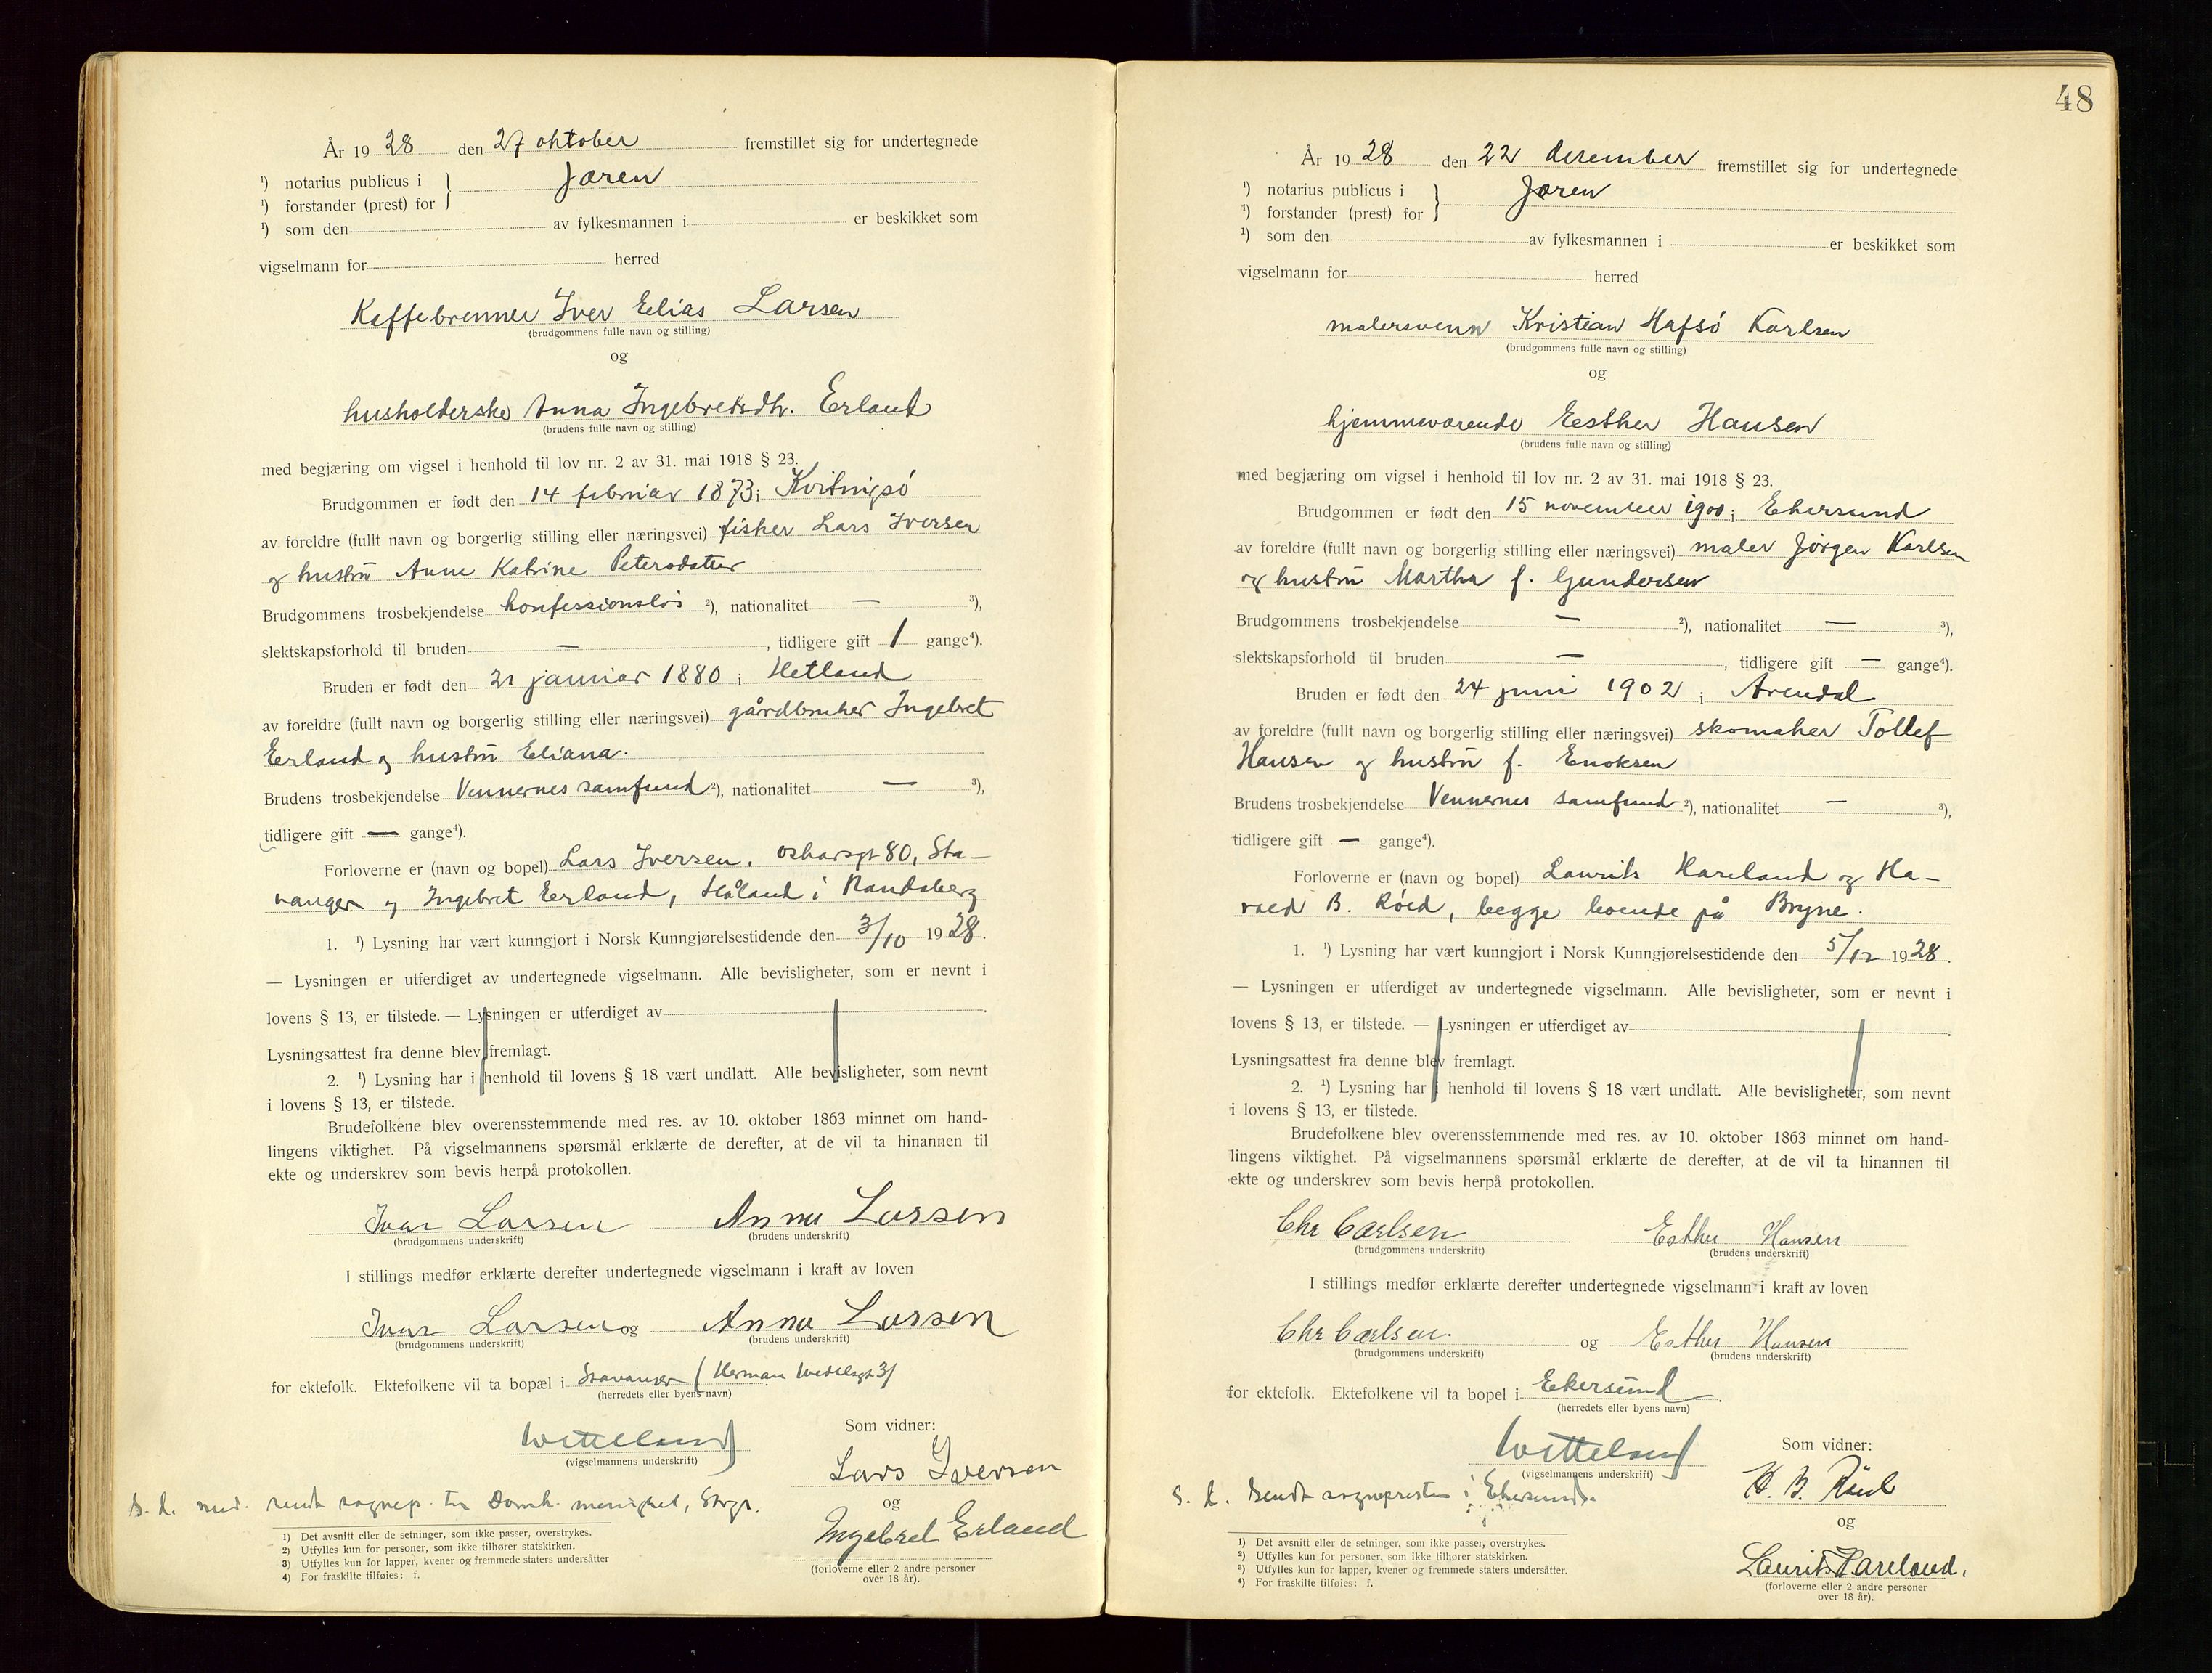 År 1928 den 27 oktober fremstillet sig for undertegnede
¹) notarius publicus i } Jæren
¹) forstander (prest) for
¹) som den av fylkesmannen i er beskikket som
vigselmann for herred
Kaffebrenner Iver Elias Larsen
(brudgommens fulle navn og stilling)
og
husholderske Anna Ingebretsdtr. Erland
(brudens fulle navn og stilling)
med begjæring om vigsel i henhold til lov nr. 2 av 31. mai 1918 § 23.
Brudgommen er født den 14 februar 1873 i Kvitingsö
av foreldre (fullt navn og borgerlig stilling eller næringsvei) fisker Lars Iversen
og hustru Anne Katrine Petersdatter
Brudgommens trosbekjendelse konfessionslös ²), nationalitet — ³),
slektskapsforhold til bruden —, tidligere gift 1 gange⁴).
Bruden er født den 21 januar 1880 i Hetland
av foreldre (fullt navn og borgerlig stilling eller næringsvei) gårdbruker Ingebret
Erland og hustru Eliana.
Brudens trosbekjendelse Vennernes samfund ²), nationalitet — ³),
tidligere gift — gange⁴).
Forloverne er (navn og bopel) Lars Iversen, Oskarsgt 80, Sta-
vanger og Ingebret Erland, Håland i Randaberg
1. ¹) Lysning har vært kunngjort i Norsk Kunngjørelsestidende den 3/10 1928.
— Lysningen er utferdiget av undertegnede vigselmann. Alle bevisligheter, som er nevnt i
lovens § 13, er tilstede. — Lysningen er utferdiget av .
Lysningsattest fra denne blev fremlagt.
2. ¹) Lysning har i henhold til lovens § 18 vært undlatt. Alle bevisligheter, som nevnt
i lovens § 13, er tilstede.
Brudefolkene blev overensstemmende med res. av 10. oktober 1863 minnet om hand-
lingens viktighet. På vigselmannens spørsmål erklærte de derefter, at de vil ta hinannen til
ekte og underskrev som bevis herpå protokollen.
Ivar Larsen Anna Larsen
(brudgommens underskrift) (brudens underskrift)
I stillings medfør erklærte derefter undertegnede vigselmann i kraft av loven
Ivar Larsen og Anna Larsen
(brudgommens underskrift) (brudens underskrift)
for ektefolk. Ektefolkene vil ta bopæl i Stavanger (Herman Wedelsgt 3)
(herredets eller byens navn)
Wetteland
(vigselmannens underskrift)
Som vidner:
Lars Iversen
og
Ingebret Erland
(forloverne eller 2 andre personer
over 18 år).
S. d. med. sendt sognep. til Domk. menighet, Stvgr.
1) Det avsnitt eller de setninger, som ikke passer, overstrykes.
2) Utfylles kun for personer, som ikke tilhører statskirken.
3) Utfylles kun for lapper, kvener og fremmede staters undersåtter
4) For fraskilte tilføies: f.
48
År 1928 den 22 desember fremstillet sig for undertegnede
¹) notarius publicus i } Jæren
¹) forstander (prest) for
¹) som den av fylkesmannen i er beskikket som
vigselmann for herred
malersvenn Kristian Hafsö Karlsen
(brudgommens fulle navn og stilling)
og
hjemmeværende Esther Hansen
(brudens fulle navn og stilling)
med begjæring om vigsel i henhold til lov nr. 2 av 31. mai 1918 § 23.
Brudgommen er født den 15 november 1900 i Ekersund
av foreldre (fullt navn og borgerlig stilling eller næringsvei) maler Jörgen Karlsen
og hustru Martha f. Gundersen
Brudgommens trosbekjendelse — ²), nationalitet — ³),
slektskapsforhold til bruden —, tidligere gift — gange⁴).
Bruden er født den 24 juni 1902 i Arendal
av foreldre (fullt navn og borgerlig stilling eller næringsvei) skomaker Tollef
Hansen og hustru f. Enoksen
Brudens trosbekjendelse Vennernes samfund ²), nationalitet — ³),
tidligere gift — gange⁴).
Forloverne er (navn og bopel) Laurits Hareland og Ha-
vard B. Röed, begge boende på Bryne.
1. ¹) Lysning har vært kunngjort i Norsk Kunngjørelsestidende den 5/12 1928.
— Lysningen er utferdiget av undertegnede vigselmann. Alle bevisligheter, som er nevnt i
lovens § 13, er tilstede. — Lysningen er utferdiget av .
Lysningsattest fra denne blev fremlagt.
2. ¹) Lysning har i henhold til lovens § 18 vært undlatt. Alle bevisligheter, som nevnt
i lovens § 13, er tilstede.
Brudefolkene blev overensstemmende med res. av 10. oktober 1863 minnet om hand-
lingens viktighet. På vigselmannens spørsmål erklærte de derefter, at de vil ta hinannen til
ekte og underskrev som bevis herpå protokollen.
Chr Carlsen Esther Hansen
(brudgommens underskrift) (brudens underskrift)
I stillings medfør erklærte derefter undertegnede vigselmann i kraft av loven
Chr Carlsen. og Esther Hansen
(brudgommens underskrift) (brudens underskrift)
for ektefolk. Ektefolkene vil ta bopel i Ekersund.
(herredets eller byens navn)
Wetteland
(vigselmannens underskrift)
Som vidner:
H. B. Röed
og
Laurits Hareland.
(forloverne eller 2 andre personer
over 18 år).
S. d. sendt sognepresten i Ekersund.
1) Det avsnitt eller de setninger, som ikke passer, overstrykes.
²) Utfylles kun for personer, som ikke tilhører statskirken.
³) Utfylles kun for lapper, kvener og fremmede staters undersåtter.
⁴) For fraskilte tilføies: f.